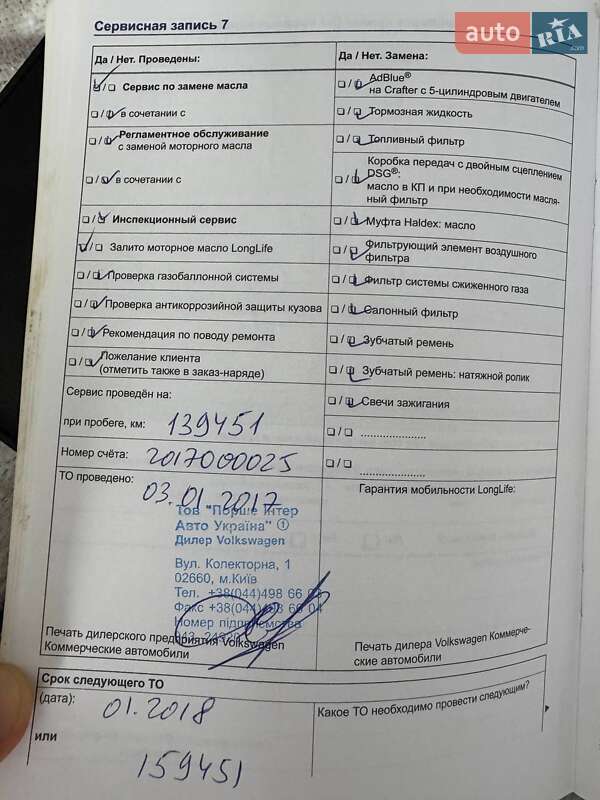 Сервисная запись 7
auto RIA.com
Да / Нет. Проведены:
☐ / ☐ Сервис по замене масла
☐ / ☐ в сочетании с
☐ / ☐ Регламентное обслуживание
с заменой моторного масла
☐ / ☐ в сочетании с
☐ / ☐ Инспекционный сервис
☐ / ☐ Залито моторное масло LongLife
☐ / ☐ Проверка газобаллонной системы
☐ / ☐ Проверка антикоррозийной защиты кузова
☐ / ☐ Рекомендация по поводу ремонта
☐ / ☐ Пожелание клиента
(отметить также в заказ-наряде)
Да / Нет. Замена:
☐ / ☐ AdBlue®
на Crafter с 5-цилиндровым двигателем
☐ / ☐ Тормозная жидкость
☐ / ☐ Топливный фильтр
☐ / ☐ Коробка передач с двойным сцеплением
DSG®:
масло в КП и при необходимости масля-
ный фильтр
☐ / ☐ Муфта Haldex: масло
☐ / ☐ Фильтрующий элемент воздушного
фильтра
☐ / ☐ Фильтр системы сжиженного газа
☐ / ☐ Салонный фильтр
☐ / ☐ Зубчатый ремень
☐ / ☐ Зубчатый ремень: натяжной ролик
☐ / ☐ Свечи зажигания
☐ / ☐ ......................
☐ / ☐ ......................
Сервис проведён на:
при пробеге, км: 139451
Номер счёта: 2017000025
ТО проведено: 03.01.2017
Тов "Порше Інтер
Авто Україна" ①
Дилер Volkswagen
Вул. Колекторна, 1
02660, м.Київ
Тел. +38(044)498 66
Факс +38(044)498 66 04
Номер підприємства
Печать дилерского предприятия Volkswagen
Коммерческие автомобили
Гарантия мобильности LongLife:
Печать дилера Volkswagen Коммерче-
ские автомобили
Срок следующего ТО
(дата): 01.2018
или
159451
Какое ТО необходимо провести следующим?